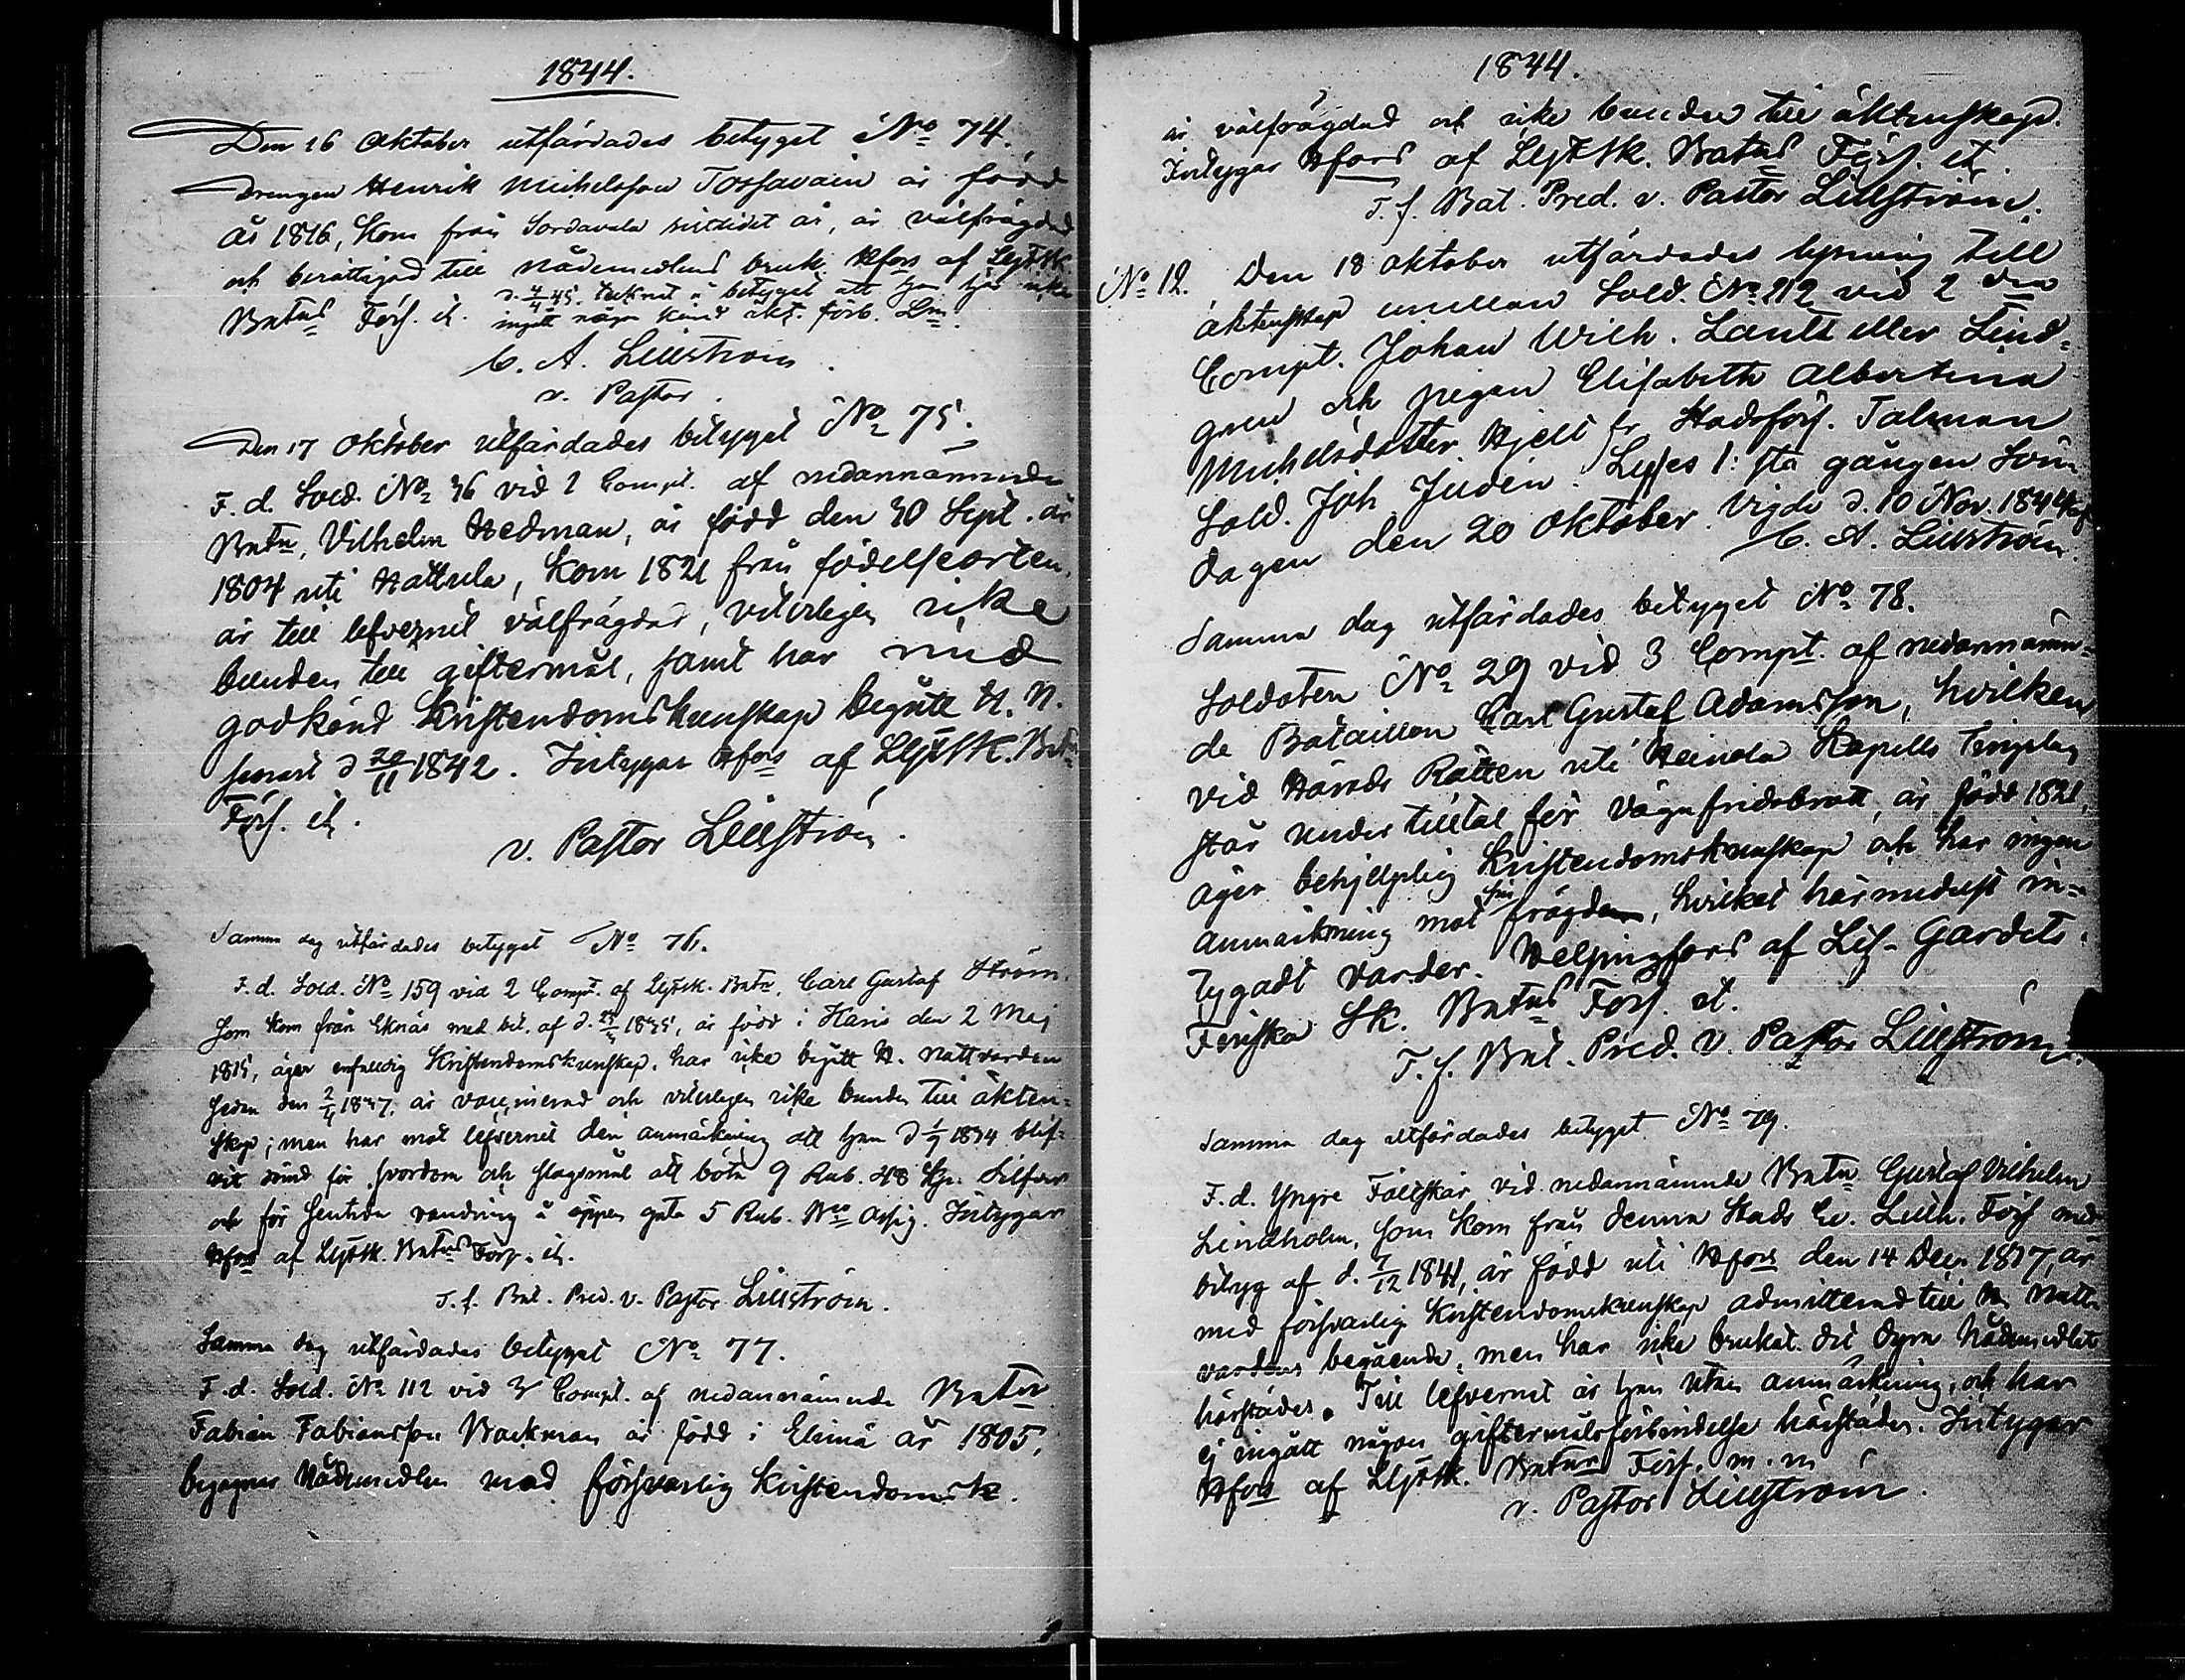 1844.
Den 16 Oktober utfärdades betyget No 74.
Drengen Henrik Michelsson Tossavain är född
År 1816, kom från Sordavala sistlidet år, är välfrägdad
och berättigad till Nådemedlens bruk. Hfors af LGFSk.
Batns Förs. et. d. 4/4 45. tecknat å betyget att han här icke
ingått några känd äkt. förb. Lm.
C. A. Lillström
v. Pastor.
Den 17 Oktober utfärdades betyget No 75.
F. d. Sold. No 36 vid 1 Compt. af nedannämnde
Batn, Vilhelm Hedman, är född den 30 Sept. år
1804 uti Hattula, kom 1821 från födelseorten,
är till lefvernet välfrägdad, veterligen icke
bunden till giftermål, samt har med
godkänd Kristendomskunskap begått H. N.
senast d 20/11 1842. Intygar Hfors af LGFSk. Batns
Förs. et.
v. Pastor Lillström.
Samma dag utfärdades betyget No 76.
F. d. Sold. No 159 vid 2 Compt. af LGFSk. Batn, Carl Gustaf Ström,
som kom från Eknäs med bet. af d. 1835, är född i Karis den 2 Maj
1815, äger enfaldig Kristendomskunskap, har icke begått H. Nattvarden
sedan den 2/4 1837, är vaccinerad och veterligen icke bunden till äkten-
skap; men har mot lefvernet den anmärkning att han d 1/9 1834 blif-
vit dömd för svordom och slagsmål att böta 9 Rub. 48 Kp. Silfver
och för sentida vandring å öppen gata 5 Rub. Bco Assig. Intygar
Hfors af LGFSk. Batns Förs. et.
T. f. Bat. Pred. v. Pastor Lillström.
Samma dag utfärdades betyget No 77.
F. d. Sold. No 112 vid 3 Compt. af nedannämnde Batn
Fabian Fabiansson Backman är född i Elimä år 1805,
begagnar Nådemedlen med försvarlig Kristendomsk.
1844.
är välfrägdad och icke bunden till äktenskap.
Intygar Hfors af LGFSk. Batns Förs. et.
T. f. Bat. Pred. v. Pastor Lillström.
No 12. Den 18 oktober utfärdades lysning till
äktenskap emellan Sold. No 212 vid 2 dra
Compt. Johan Wilh. Lantt eller Lind-
gren och pigan Elisabeth Albertina
Michelsdotter Hjelt fr Stadsförs. Talman
Sold. Joh Judén. Lyses 1: sta gången Sön-
dagen den 20 Oktober. Vigde d. 10 Nov. 1844 af
C. A. Lillström.
Samma dag utfärdades betyget No 78.
Soldaten No 29 vid 3 Compt. af nedannämn-
de Bataillon Carl Gustaf Adamsson, hvilken
vid Härads Rätten uti Heinola Kapells Tingslag
står under tilltal för vägafridsbrott, är född 1821,
äger behjelplig Kristendomskunskap och har ingen
anmärkning mot sin frägd, hvilket härmedelst in-
tygadt varder. Helsingfors af Lif-Gardets
Finska Sk. Batns Förs. et.
T. f. Bat. Pred. v. Pastor Lillström.
Samma dag utfärdades betyget No 79.
F. d. Yngre Fältskär vid nedannämnde Batn Gustaf Vilhelm
Lindholm, som kom från denna Stads Ev. Luth. Förs med
betyg af d. 7/12 1841, är född uti Hfors den 14 Decr 1817, är
med försvarlig Kristendomskunskap admitterad till H. Natt-
vardens begående, men har icke brukat det dyra Nådemedlet
härstädes. Till lefvernet är han utan anmärkning, och har
ej ingått någon giftermålsförbindelse härstädes. Intygar
Hfors af LGFSk. Batns Förs. m. m
v. Pastor Lillström.